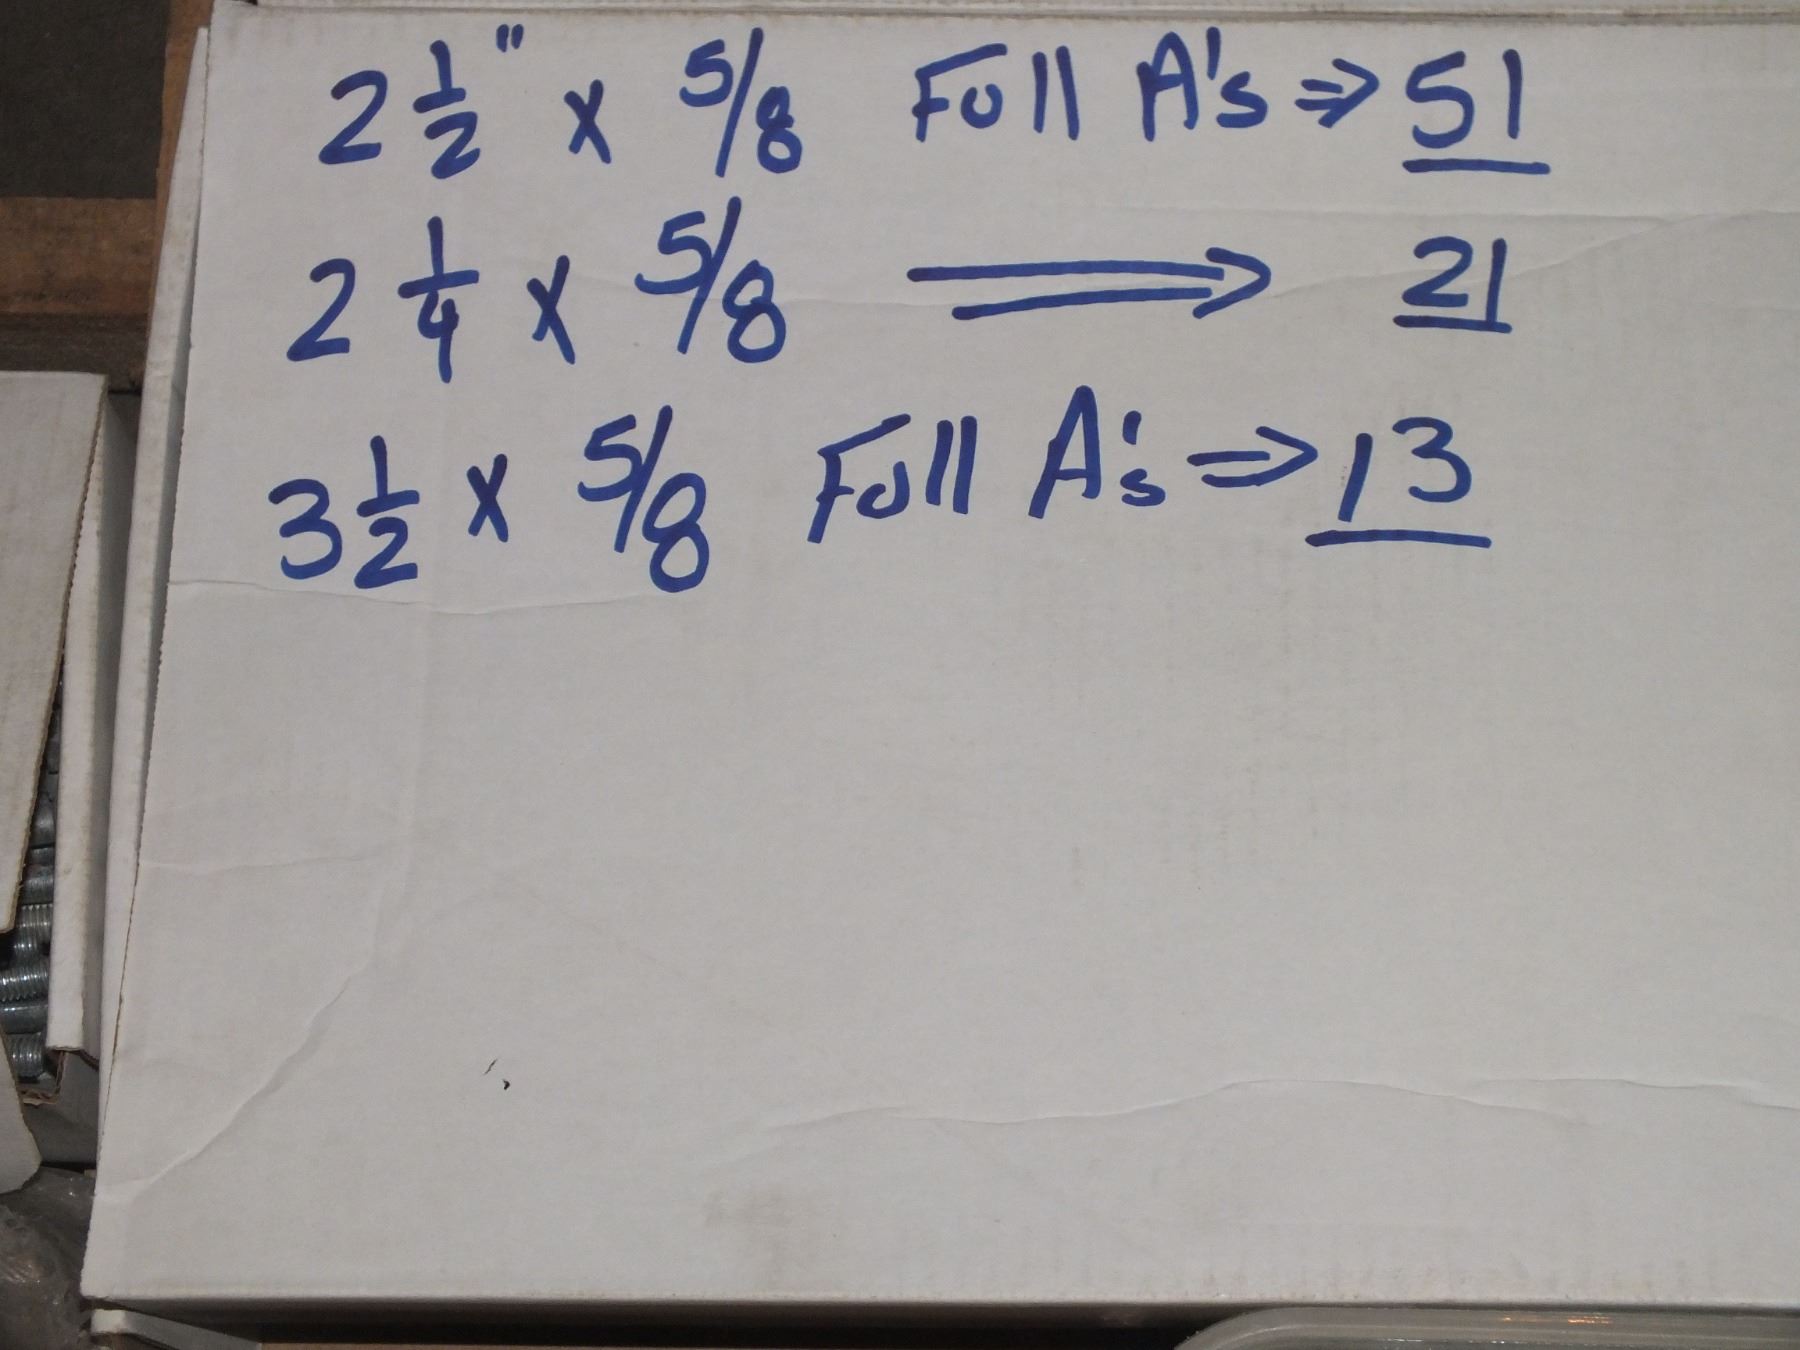 2 1/2" x 5/8 Full A's ⇒ 51
2 1/4 x 5/8 ⇒ 21
3 1/2 x 5/8 Full A's ⇒ 13